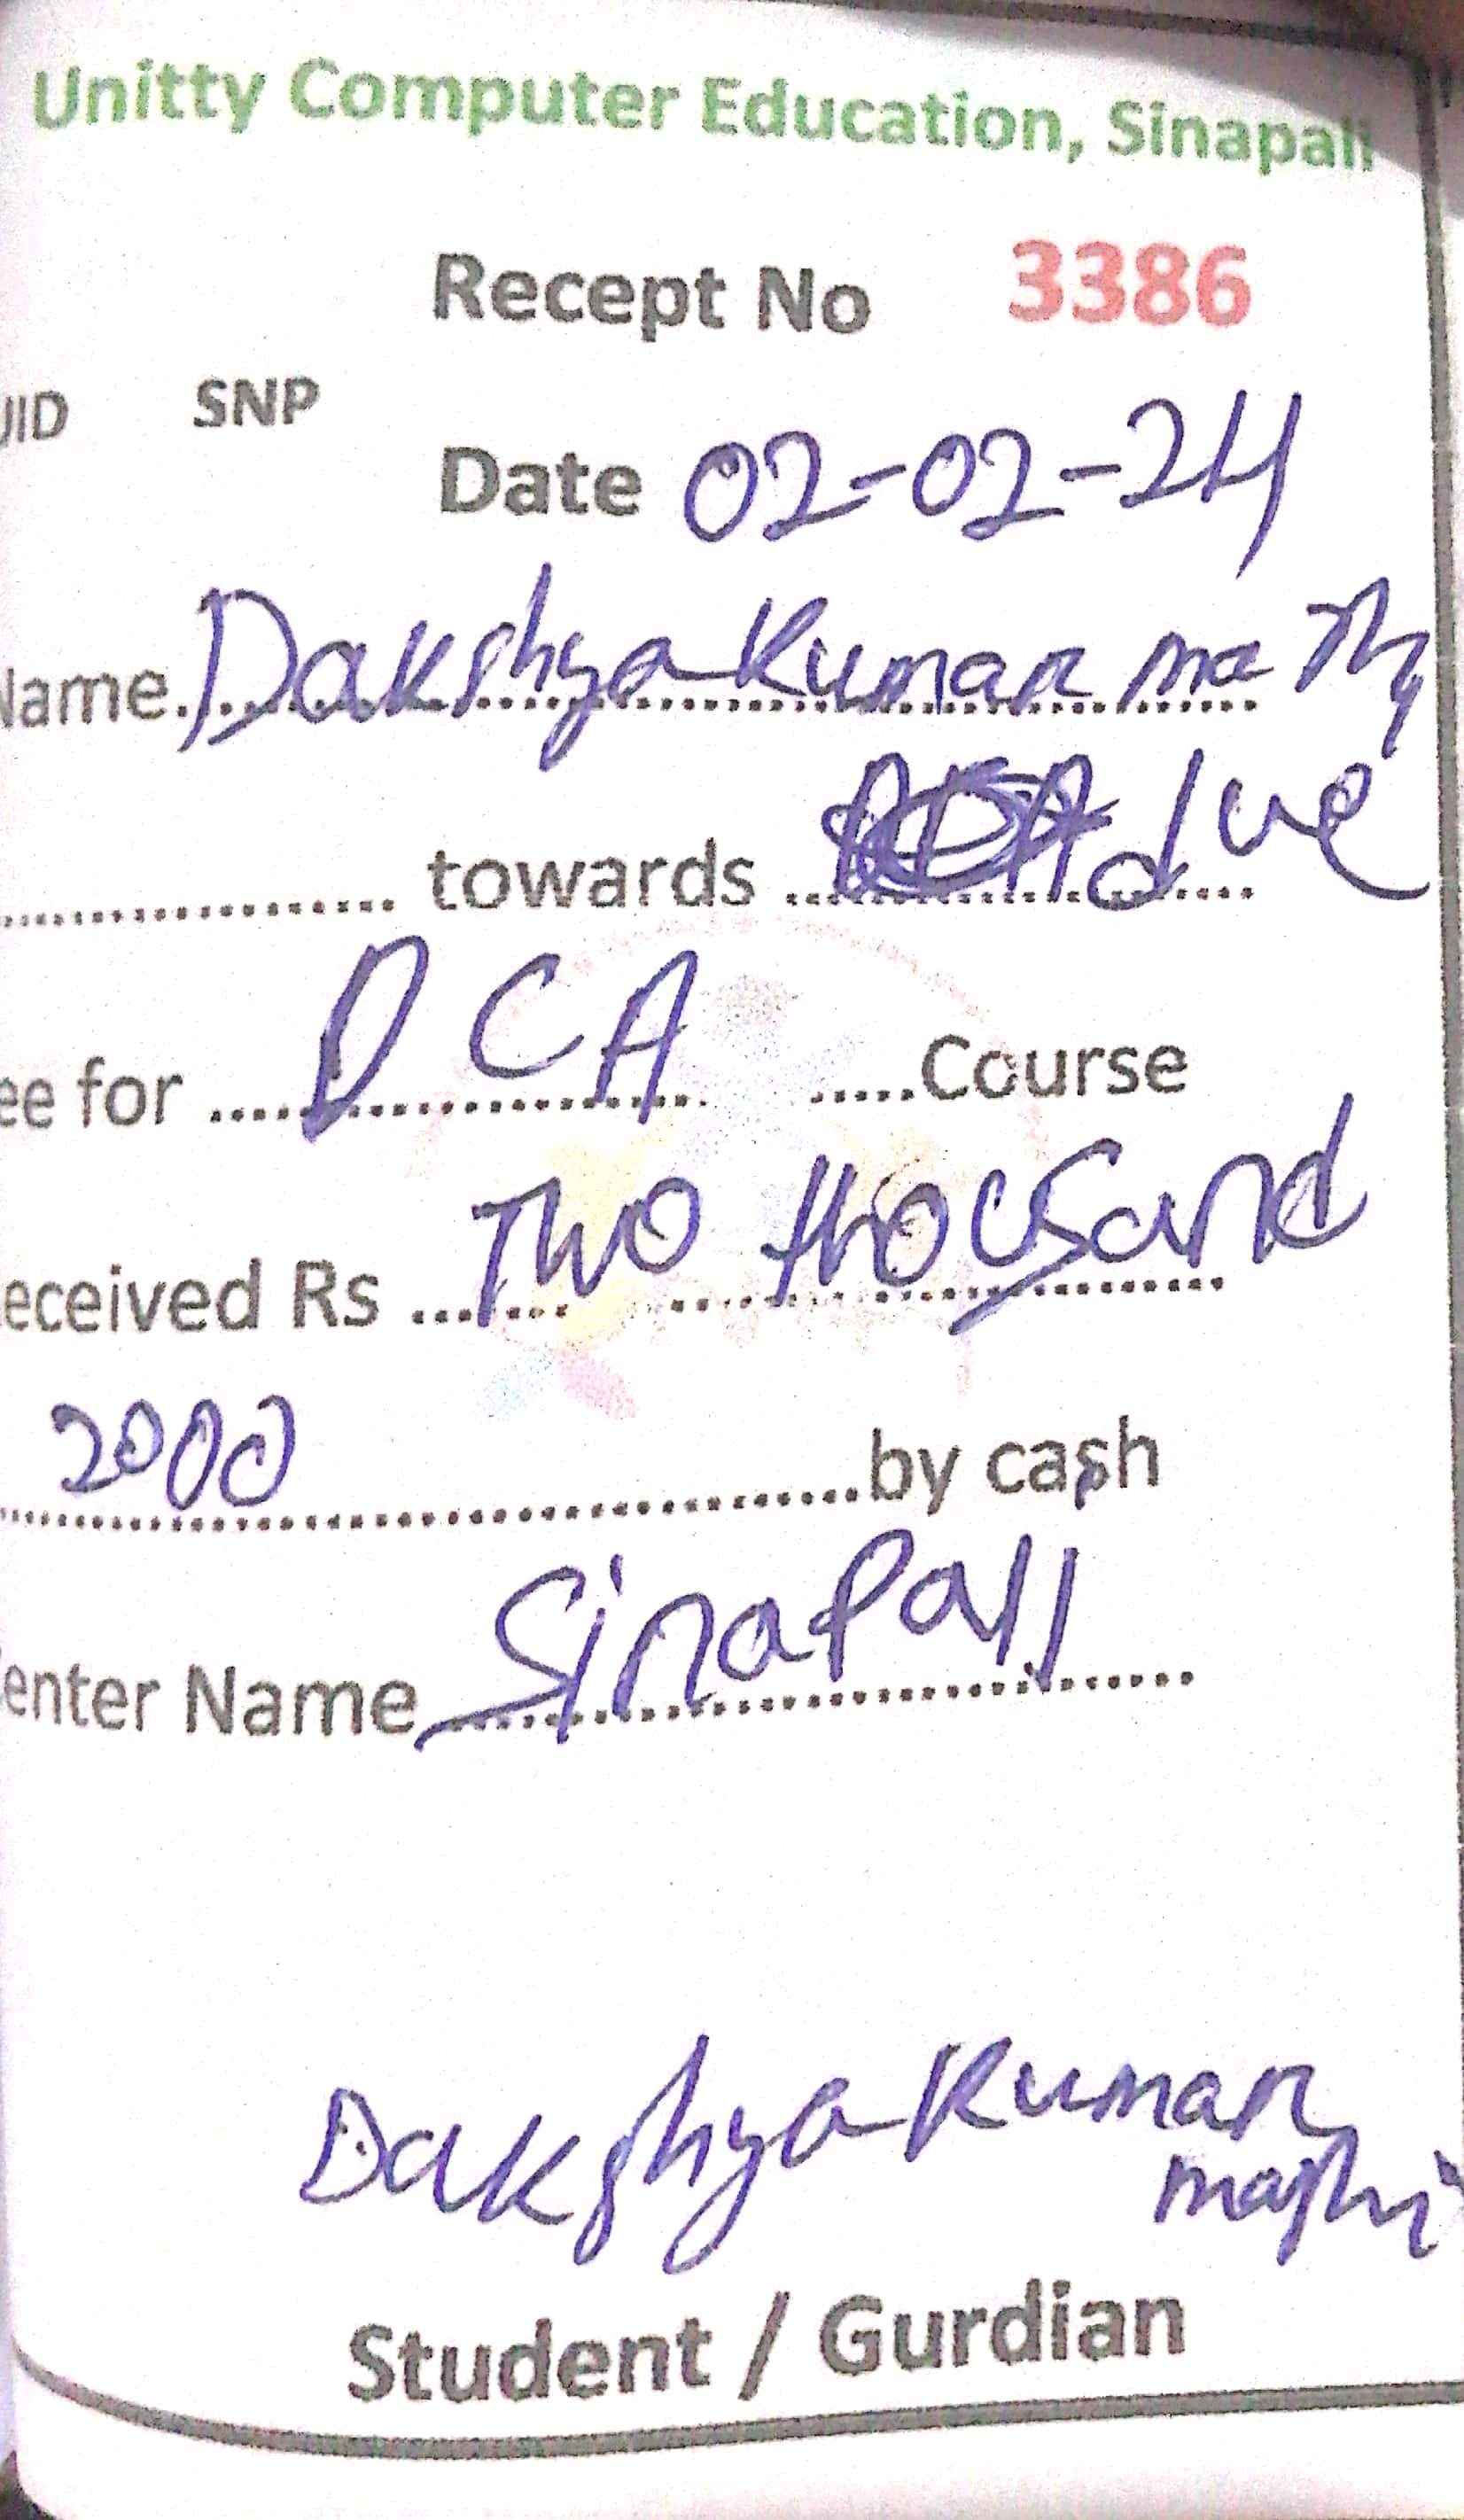 Unitty Computer Education, Sinapali
Recept No 3386
UID SNP
Date 02-02-24
Name. Dakshya Kumar
towards due
ee for D C A Course
eceived Rs Two thousand
2000 by cash
enter Name Sinapali
Dakshya Kumar
majhi
Student / Gurdian